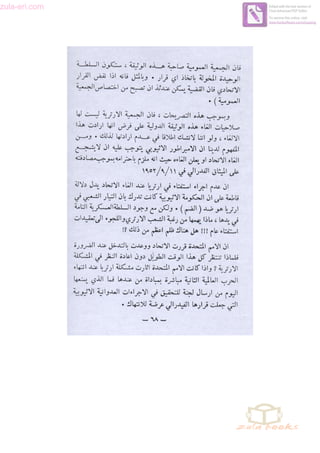 zula-eri.com
فان الجمعية العمومية صاحبة هذه الوثيقة ، ستكون السلطة
الوحيدة المخولة باتخاذ اي قرار . وبالمثل فانه اذا نقض القرار
الاتحادي فان القضية يمكن عندئذ ان تصبح من اختصاص الجمعية
العمومية ) .
وبموجب هذه التصريحات ، فان الجمعية الارترية ليست لها
صلاحيات الغاء هذه الوثيقة الدولية على فرض انها ارادت هذا
الالغاء ، ولو اننا لانشك اطلاقا في عدم ارادتها لذلك . ومن
المفهوم لدينا ان الامبراطور الاثيوبي يتوجب عليه ان لايشجع
الغاء الاتحاد او يعلن الغاءه حيث انه ملزم باحترامه بموجب مصادقته
على الميثاق الفدرالي في ١٩٥٢/٩/١١
ان عدم اجراء استفتاء في ارتريا عند الغاء الاتحاد يدل دلالة
قاطعة على ان الحكومة الاثيوبية كانت تدرك بان التيار الشعبي في
ارتريا هو ضد ( الضم ) . ولكن مع وجود السلطة العسكرية التامة
في يدها ، ماذا يهمها من رغبة الشعب الارتري واللجوء الى تعقيدات
استفتاء عام !!! هل هناك ظلم اعظم من ذلك ؟
ان الامم المتحدة قررت الاتحاد ووعدت بالتدخل عند الضرورة
فلماذا تنتظر كل هذا الوقت الطويل دون اعادة النظر في المشكلة
الارترية ؟ واذا كانت الامم المتحدة اثارت مشكلة ارتريا عند انتهاء
الحرب العالمية الثانية مباشرة بمبادأة من عندها فما الذي يمنعها
اليوم من ارسال لجنة للتحقيق في الاجراءات العدوانية الاثيوبية
التي جعلت قرارها الفيدرالي عرضة للانتهاك .
— ٦٨ —
zula books